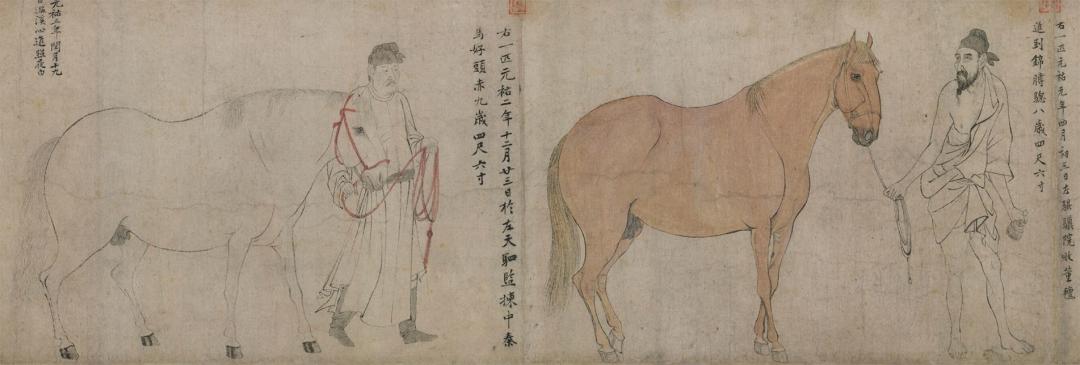 右一匹元祐元年四月初三日左騏驥院收董氊
進到錦膊驄八歲四尺六寸
右一匹元祐二年十二月廿三日於左天駟監揀中秦
馬好頭赤九歲四尺六寸
元祐三年閏月十九
日溫溪心進照夜白